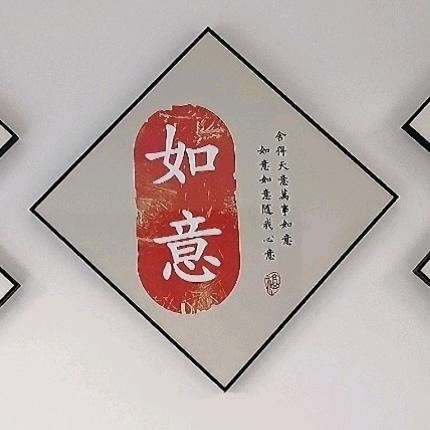 如意
舍得天意萬事如意
如意如意隨我心意
福